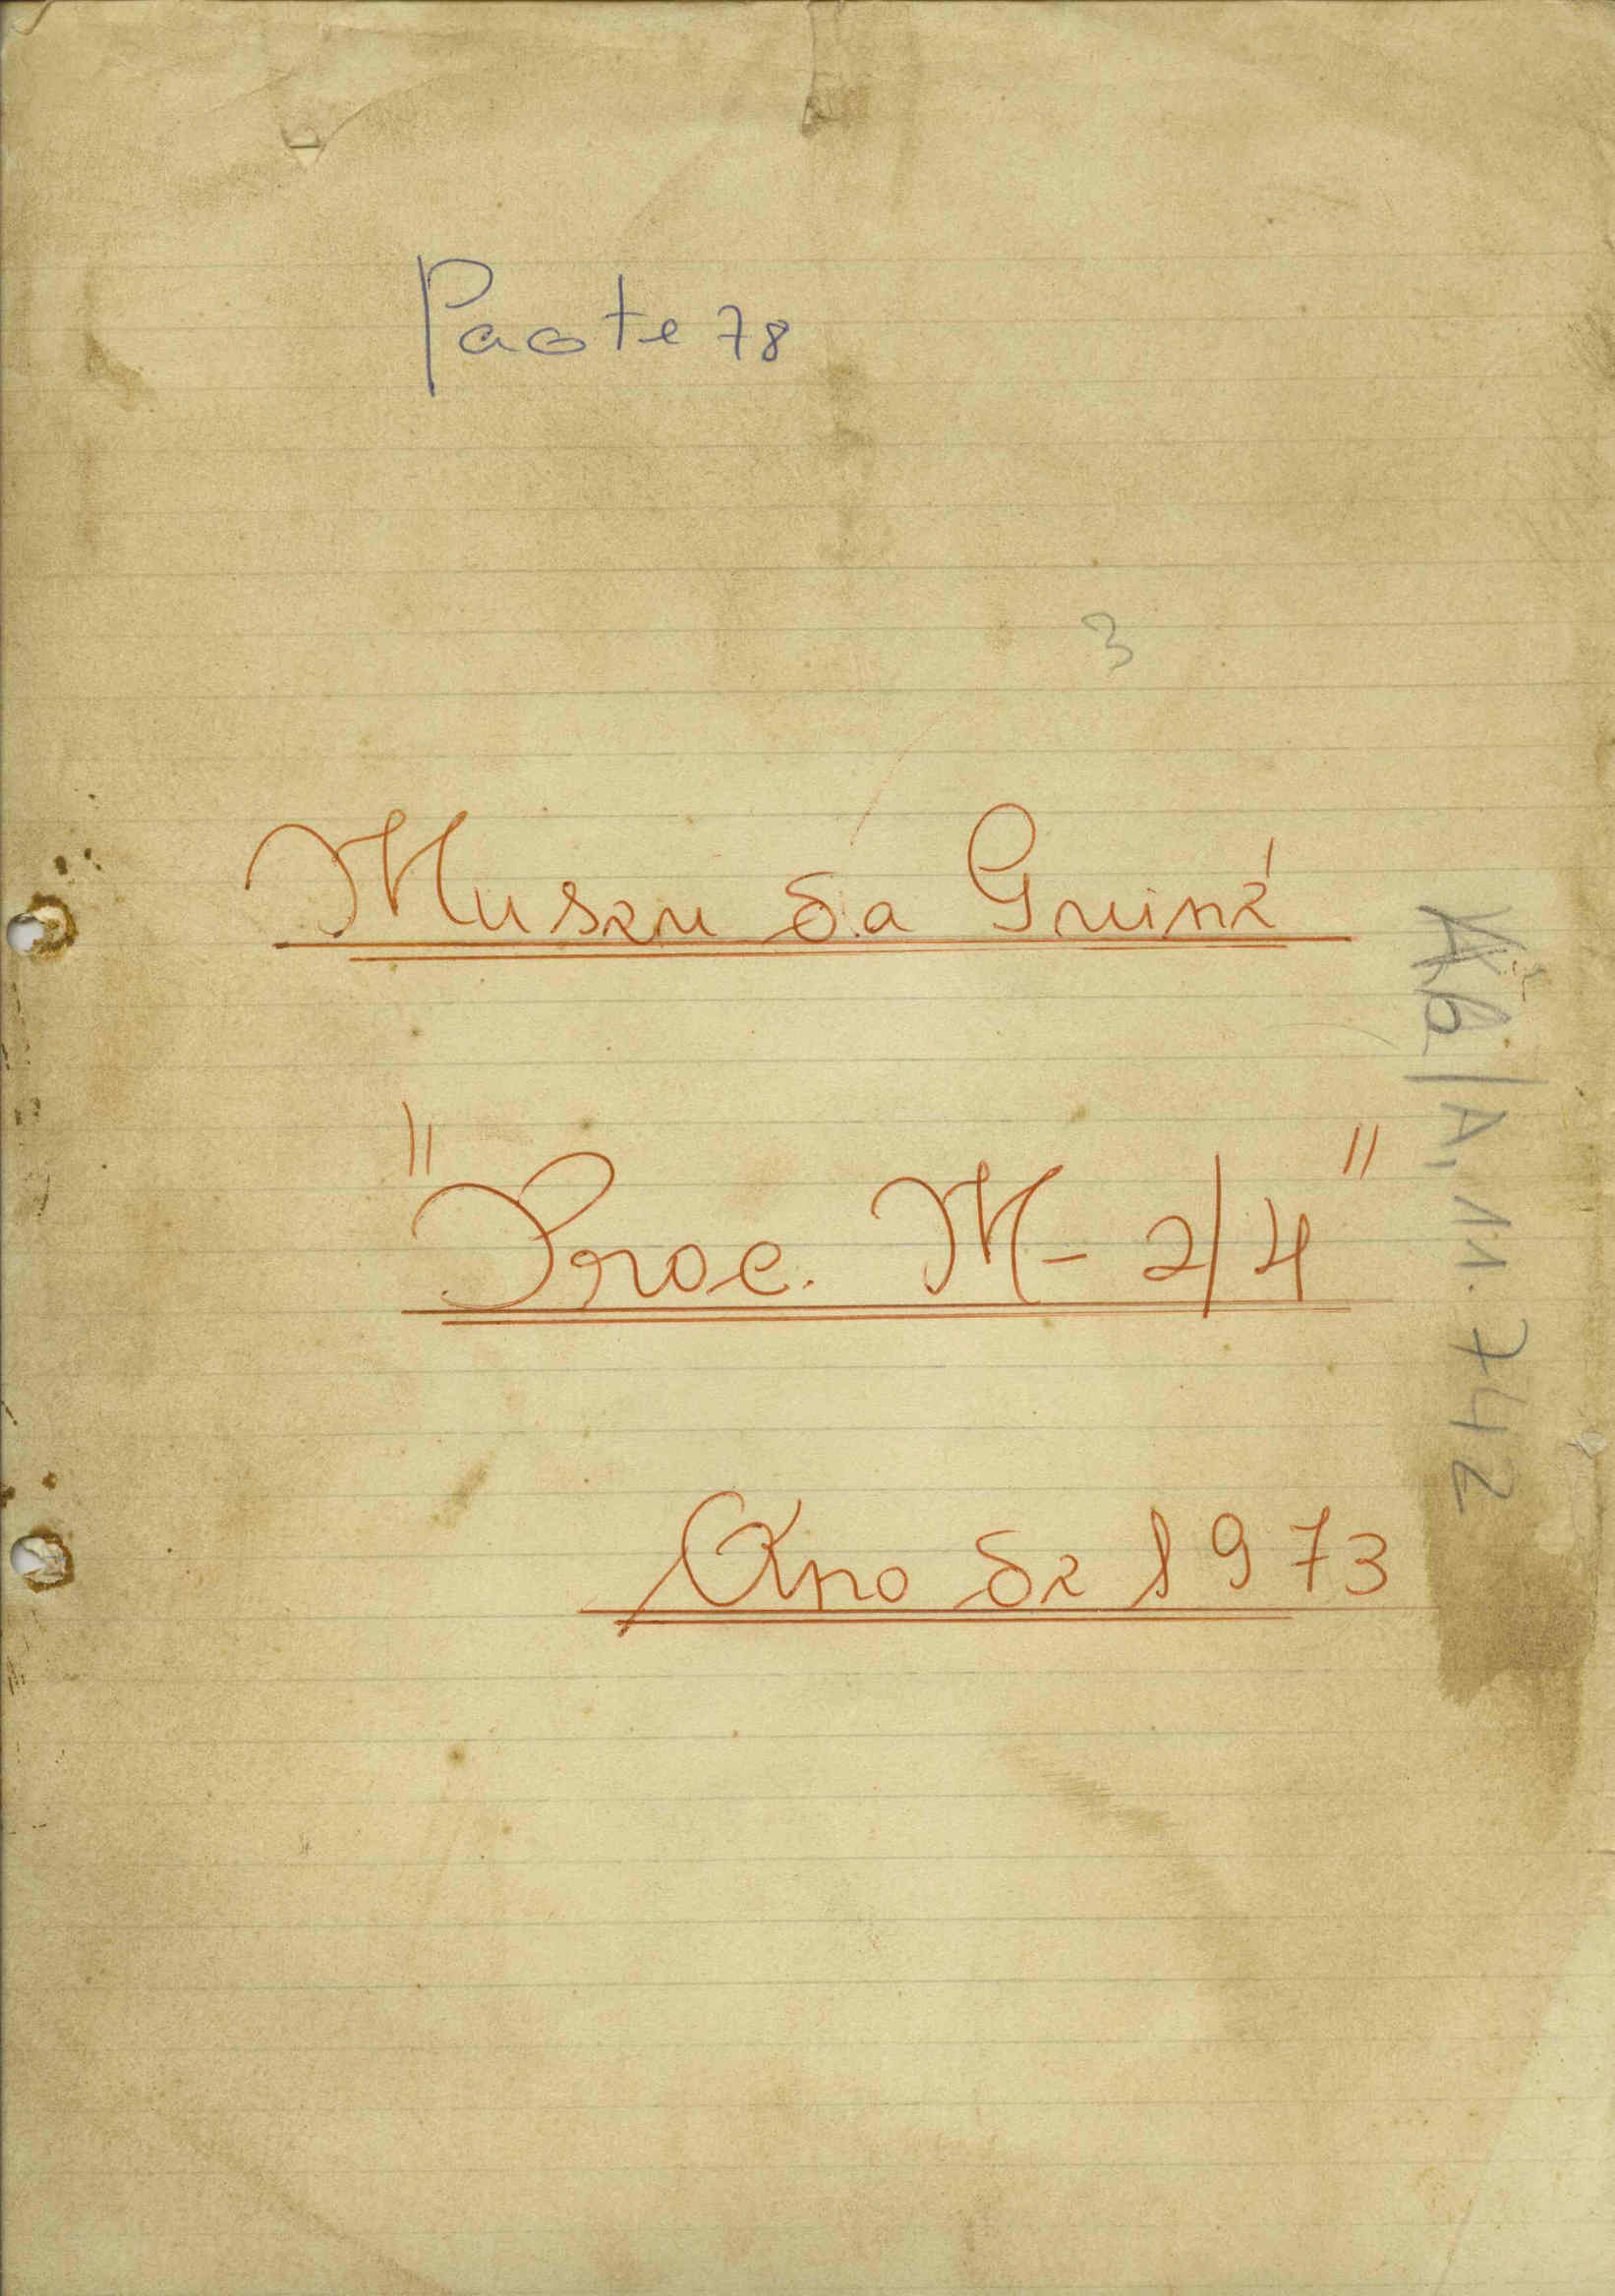 Pacote 78
3
Museu da Guiné
"Proc. M-2/4"
Ano de 1973
A.11.742